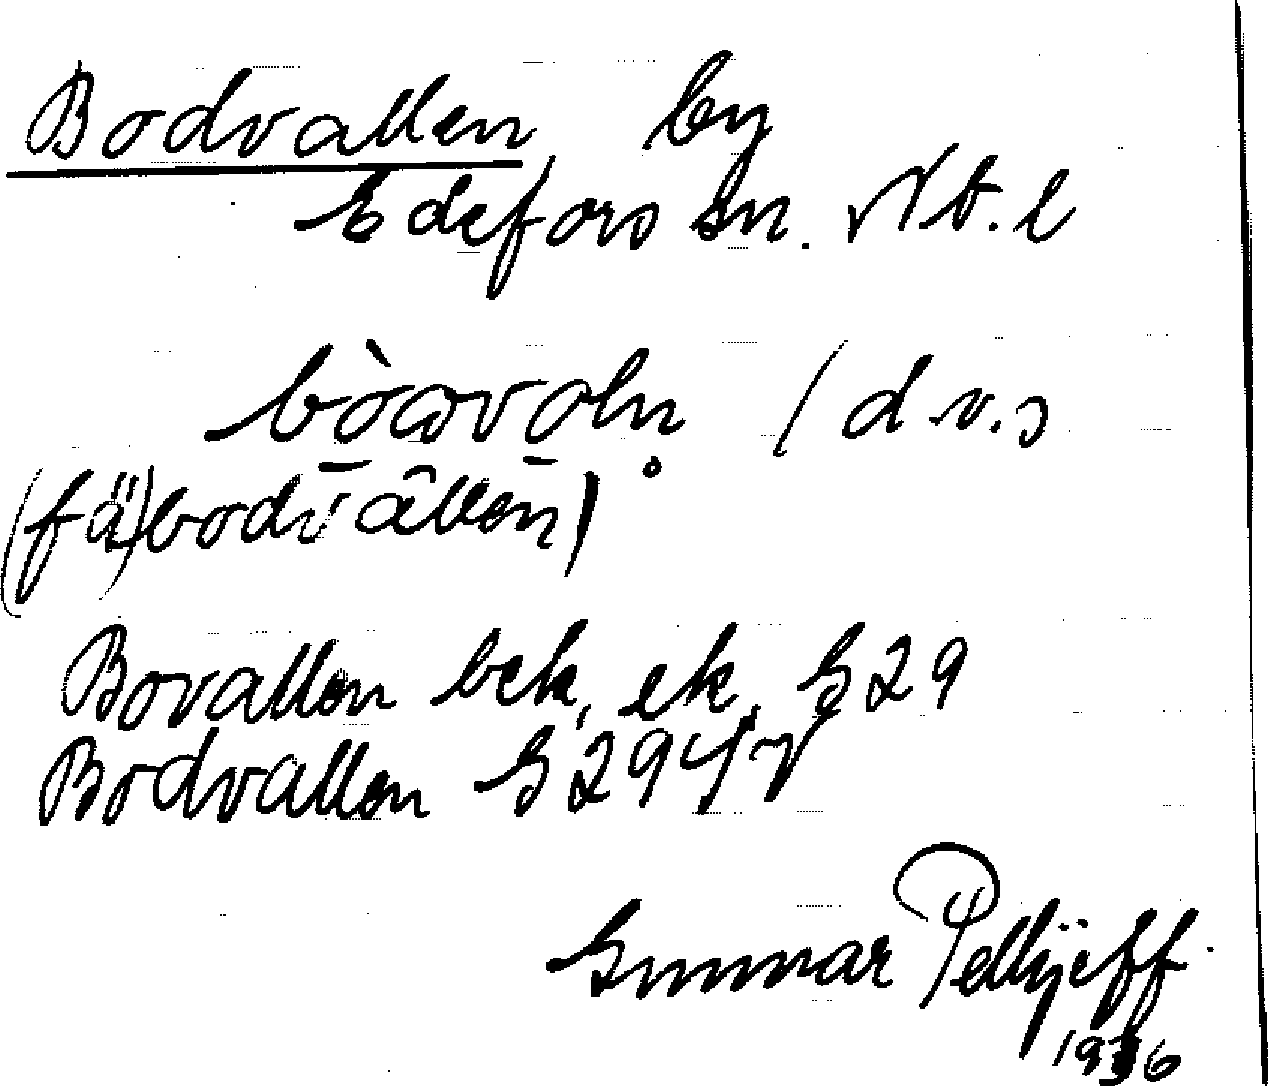 Bodvallen by
Edefors sn. Nb. l
(d.v.s
(fä)bodvallen)
Bovallen bek. ek. G 29
Bodvallen
Gunnar Pellijeff
1936